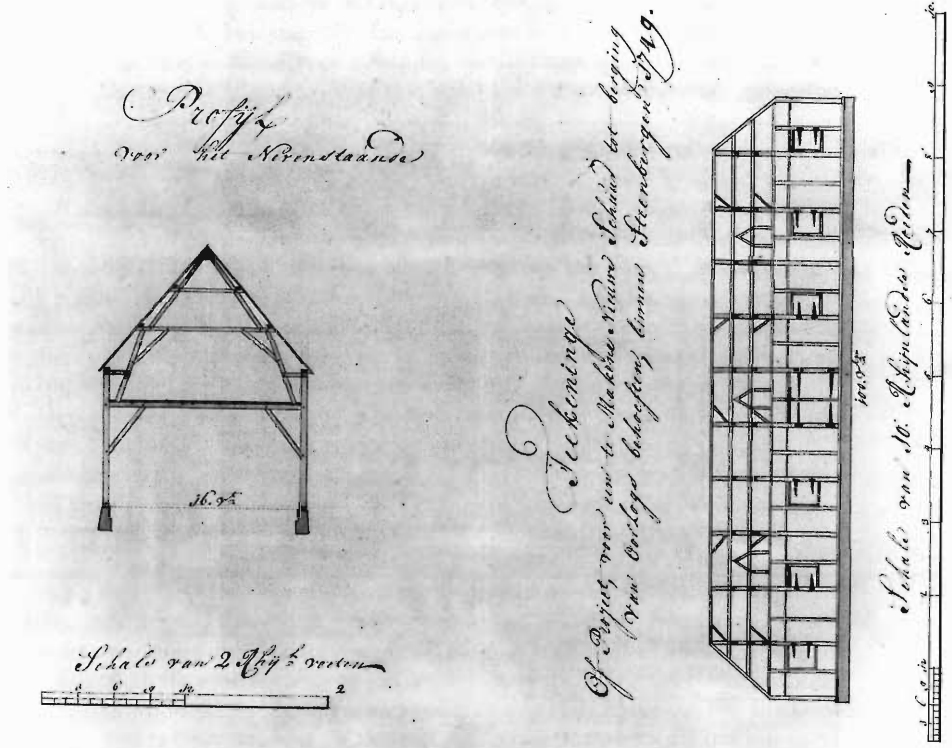 Profijl
voor het Nevenstaande
36. vt
Schale van 2 Rhijl: roeden
3 6 9 12 2
Teekeninge
Of Project, voor een te Makene Nieuwe Schuur tot berging
van Oorlogs behoeften, binnen Steenbergen 1749.
100. vt
Schale van 10: Rhijnlandse Roeden
3 6 9 12 2 3 4 5 6 7 8 9 10